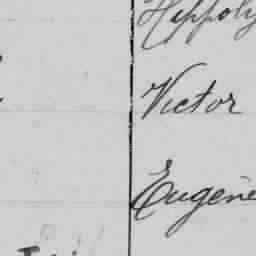 Hippoly
Victor
Eugène